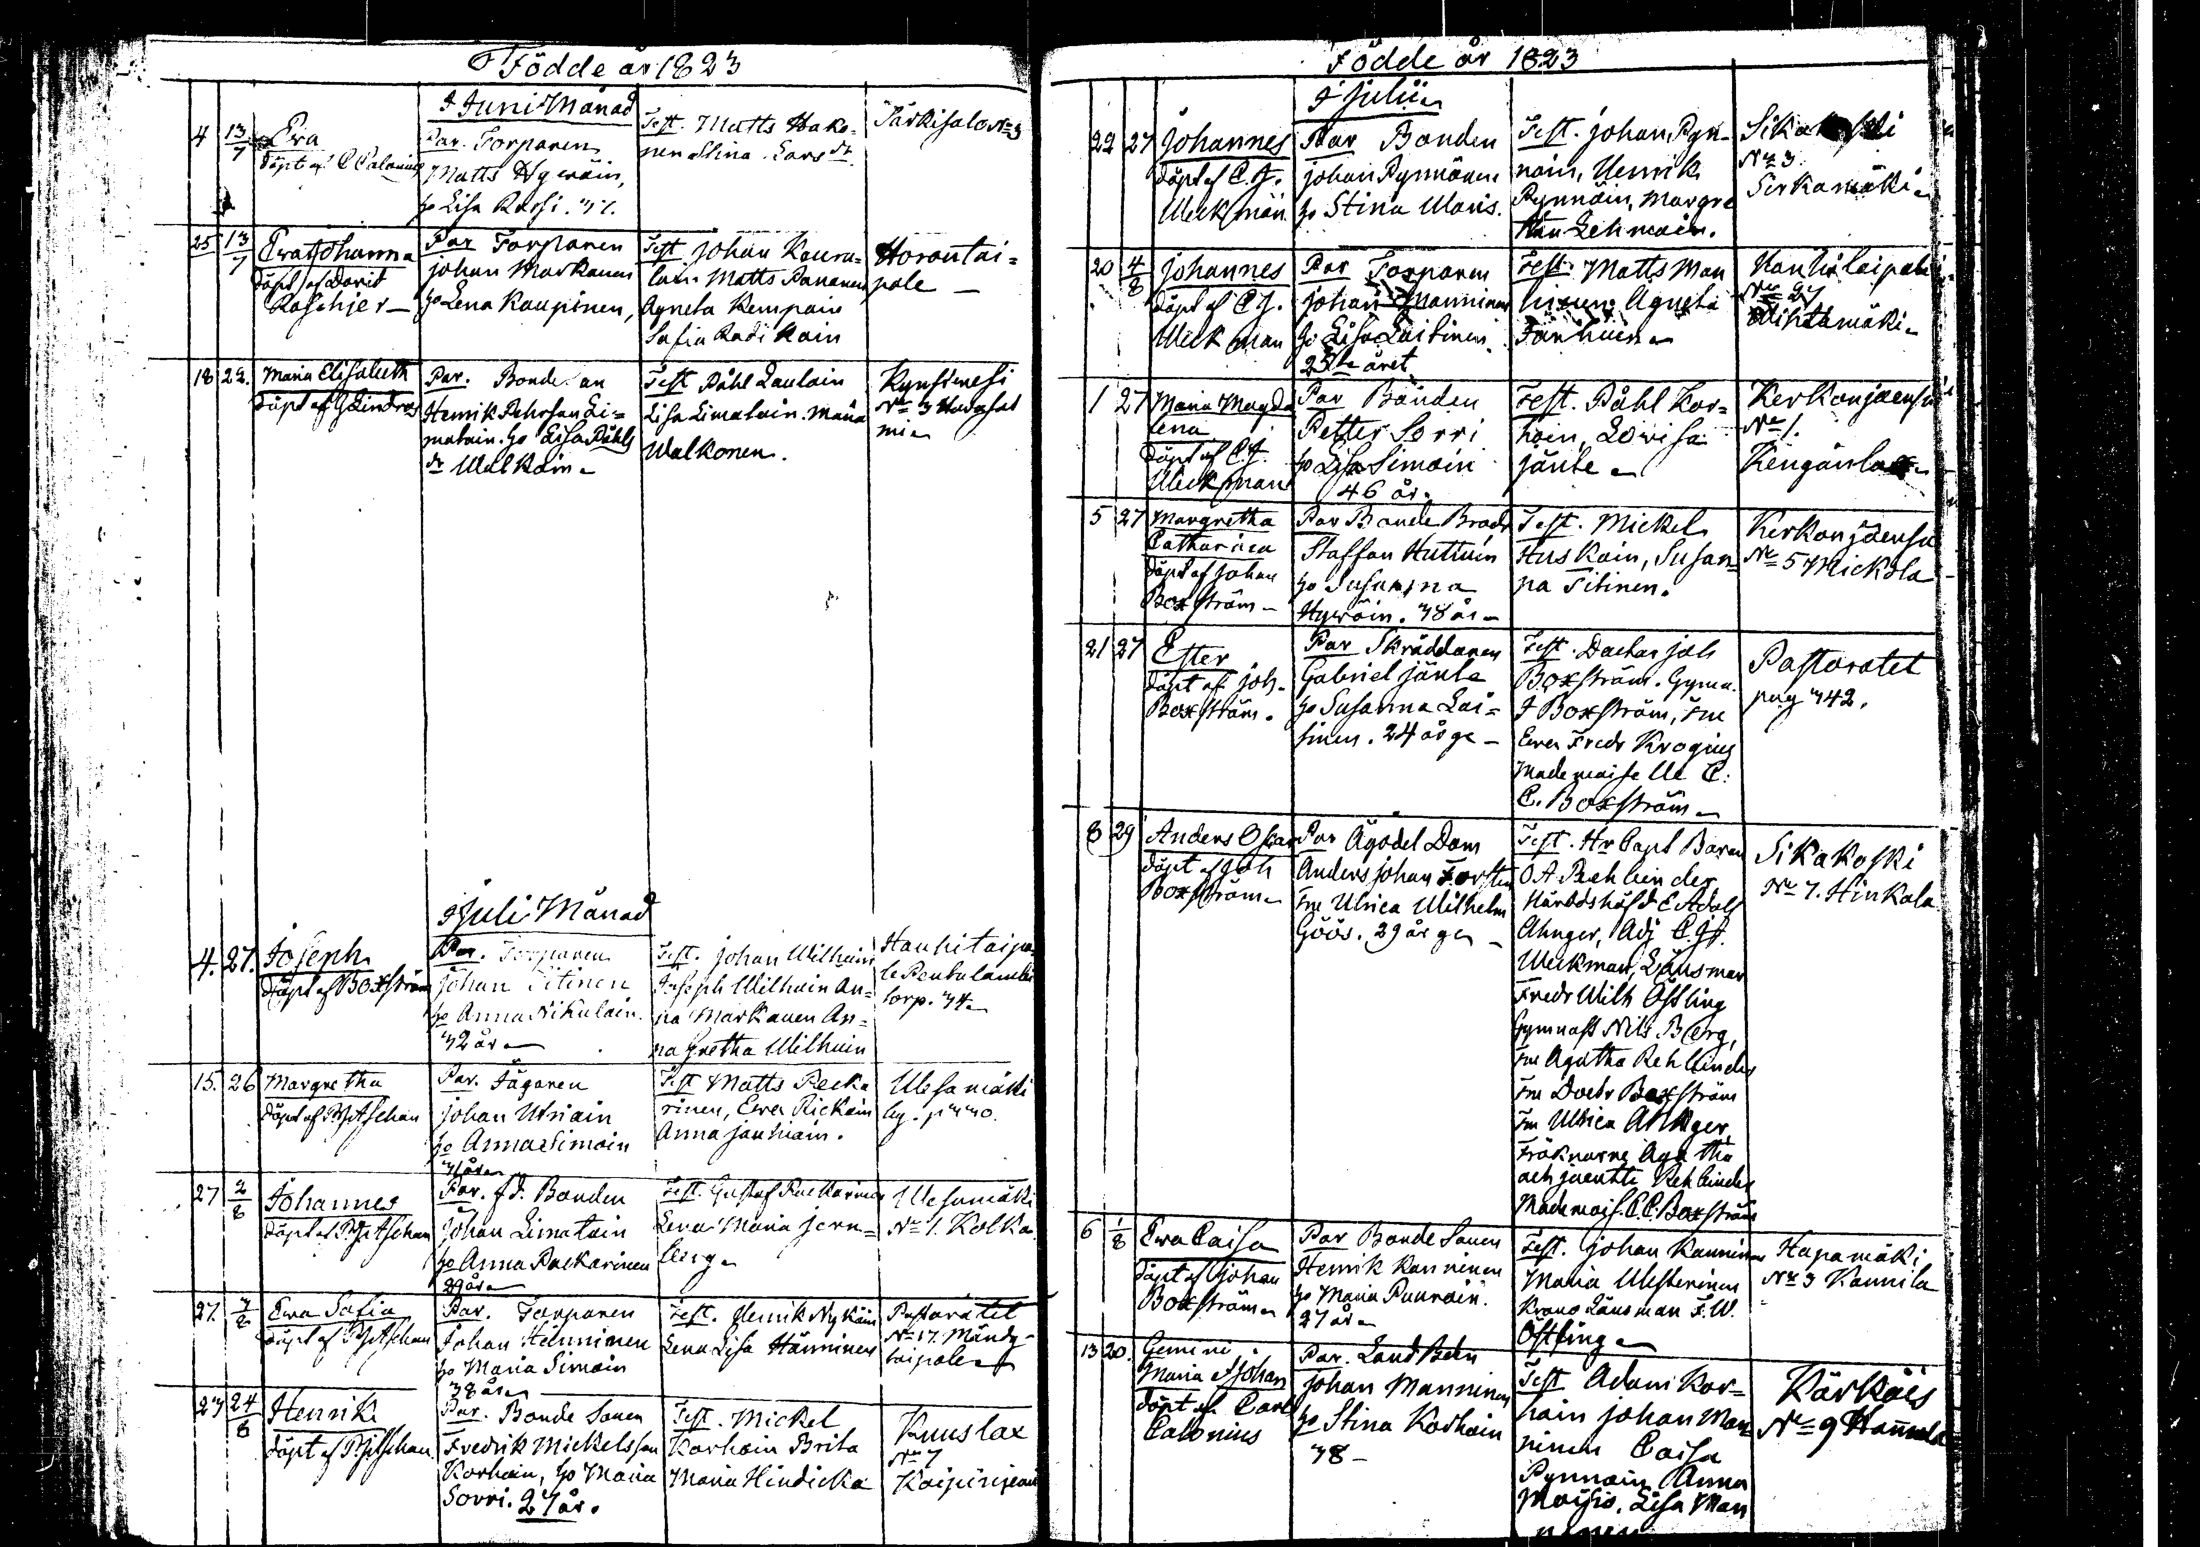 Födde år 1823
I Juni Månad
4 13/7 Eva
döpt af C Calonius
Par. Torparen
Matts Hyväin,
ho Lisa Rassi. 31.
Test. Matts Hako-
nen Stina Lars dr
Särkisalo No 3
25 13/7 Eva Johanna
döpt af David
Roschier
Par Torparen
Johan Markanen
ho Lena Kaupinen,
Test Johan Kauru-
lain Matts Pananen
Agneta Kempain
Safia Radikain
Horontai=
pale
18 22. Maria Elisabeth
döpt af G Lindros
Par. Bonde an
Henrik Pehrsan Li=
matain. ho Lisa Påhls
dr Walkain
Test Påhl Laulain
Lisa Limatain. Maria
Walkonen.
Kynsimesi
No 3
mi
I Juli Månad
4. 27. Joseph
döpt af Boxström
Par. Torparen
Johan Titinen
ho Anna Nikulain.
32 år
Test. Johan Wilhuin
Joseph Wilhuin An=
na Markanen An=
na Gretha Wilhuin
Hauhitaipa
le Pentalambi
torp. 34
15. 26 Margretha
döpt af P. Jotschan
Par. Jägaren
Johan Utriain
ho Anna Simain
31 år
Test Matts Pecka
rinen, Eva Rickain
Anna Jantiain.
Ulesamäki
hy. p 330.
27 2/8 Johannes
döpt af P. Jotschan
Par. fd. Bonden
Johan Limatain
ho Anna Packarinen
29 år
Test. Gustaf Packarinen
Lena Maria Jern=
berg
Ulesamäki
No 1. Kolka
27. 3/8 Ewa Safia
döpt af P. Jotschan
Par. Torparen
Johan Hänninen
ho Maria Simain
38 år
Test. Henrik Nykäin
Lena Lisa Hänninen
Pastoratet
No 17. Mändy-
taipale
23 24/8 Henrik
döpt af P. Jotschan
Par. Bonde Sonen
Fredrik Mickelsson
Korhain, ho Maria
Sorri. 27 år.
Test. Mickel
Korhain Brita
Maria Hindicka
Kuuslax
No 7
Födde år 1823
I Julii
22 27 Johannes
döpt af C. J.
Weckman
Par Bonden
Johan Pynnönen
ho Stina Maris.
Test. Johan Pyn-
näin, Henrik
Pynnäin, Margre
tha Lehmain.
Sikakoski
No 3
Sirkamäki
20 4/8 Johannes
döpt af C. J.
Weckman
Par Torparen
Johan Manninen
ho Lisa Laitinen
25te året
Test. Matts Man
ninen Agneta
Tanhuin
No 27
1 27 Maria Magda
lena
döpt af C. J.
Weckman
Par Bonden
Petter Sorri
ho Lisa Simain
46 år.
Test. Påhl Kor=
hoin, Lovisa
Jänte
Kerkonjoensu
No 1.
Kengänlax
5 27 Margretha
Catharina
döpt af Johan
Boxström
Par Bonde Brodr
Staffan Huttuin
ho Susanna
Hyväin. 38 år
Test. Mickel
Huskain, Susan=
na Titinen.
Kerkonjoensu
No 5 Mickola
21 27 Ester
döpt af Joh.
Boxström.
Par Skräddaren
Gabriel Jänte
ho Susanna Lai=
tinen. 24 årge
Test. Doctor Joh
Boxström. Gymn.
J Boxström, Fru
Ewa Fredr Krogius
Mademoiselle C.
C. Boxström
Pastoratet
pag 342.
8 29 Anders Oscar
döpt af Joh
Boxström
Par Ägodel Dom
Anders Johan Forsten
Fru Ulrica Wilhelm
Göös. 29 årge
Test. Hr Capt Baron
O A Rechbinder
Häradshöfd E Adolf
Ahnger, Adj C. Jh.
Weckman, Länsman
Fredr Wilh Östling
Gymnast Nils Berg,
Fru Agatha Rehbinder
Fru Doctr Boxström
Fru Ulrica Ahnger
Fröknarne Agatha
och Jacette Rehbinder
Mademois. C. C. Boxström
Sikakoski
No 7. Hinkala
6 1/8 Ewa Caisa
döpt af Johan
Boxström
Par Bonde Sonen
Henrik Kanninen
ho Maria Puuroin.
27 år
Test. Johan Kanninen
Maria Westerinen
Krono Länsman F. W.
Östling
Hapamäki
No 3 Kannila
13 20. Gemini
Maria & Johan
döpt af Carl
Calonius
Par. Land Bdn
Johan Manninen
ho Stina Korhoin
38
Test Adam Kor=
hain Johan Man
ninen Caisa
Pynnoin Anna
Moisio, Lisa Man
ninen
Kärkäis
No 9 Hannula